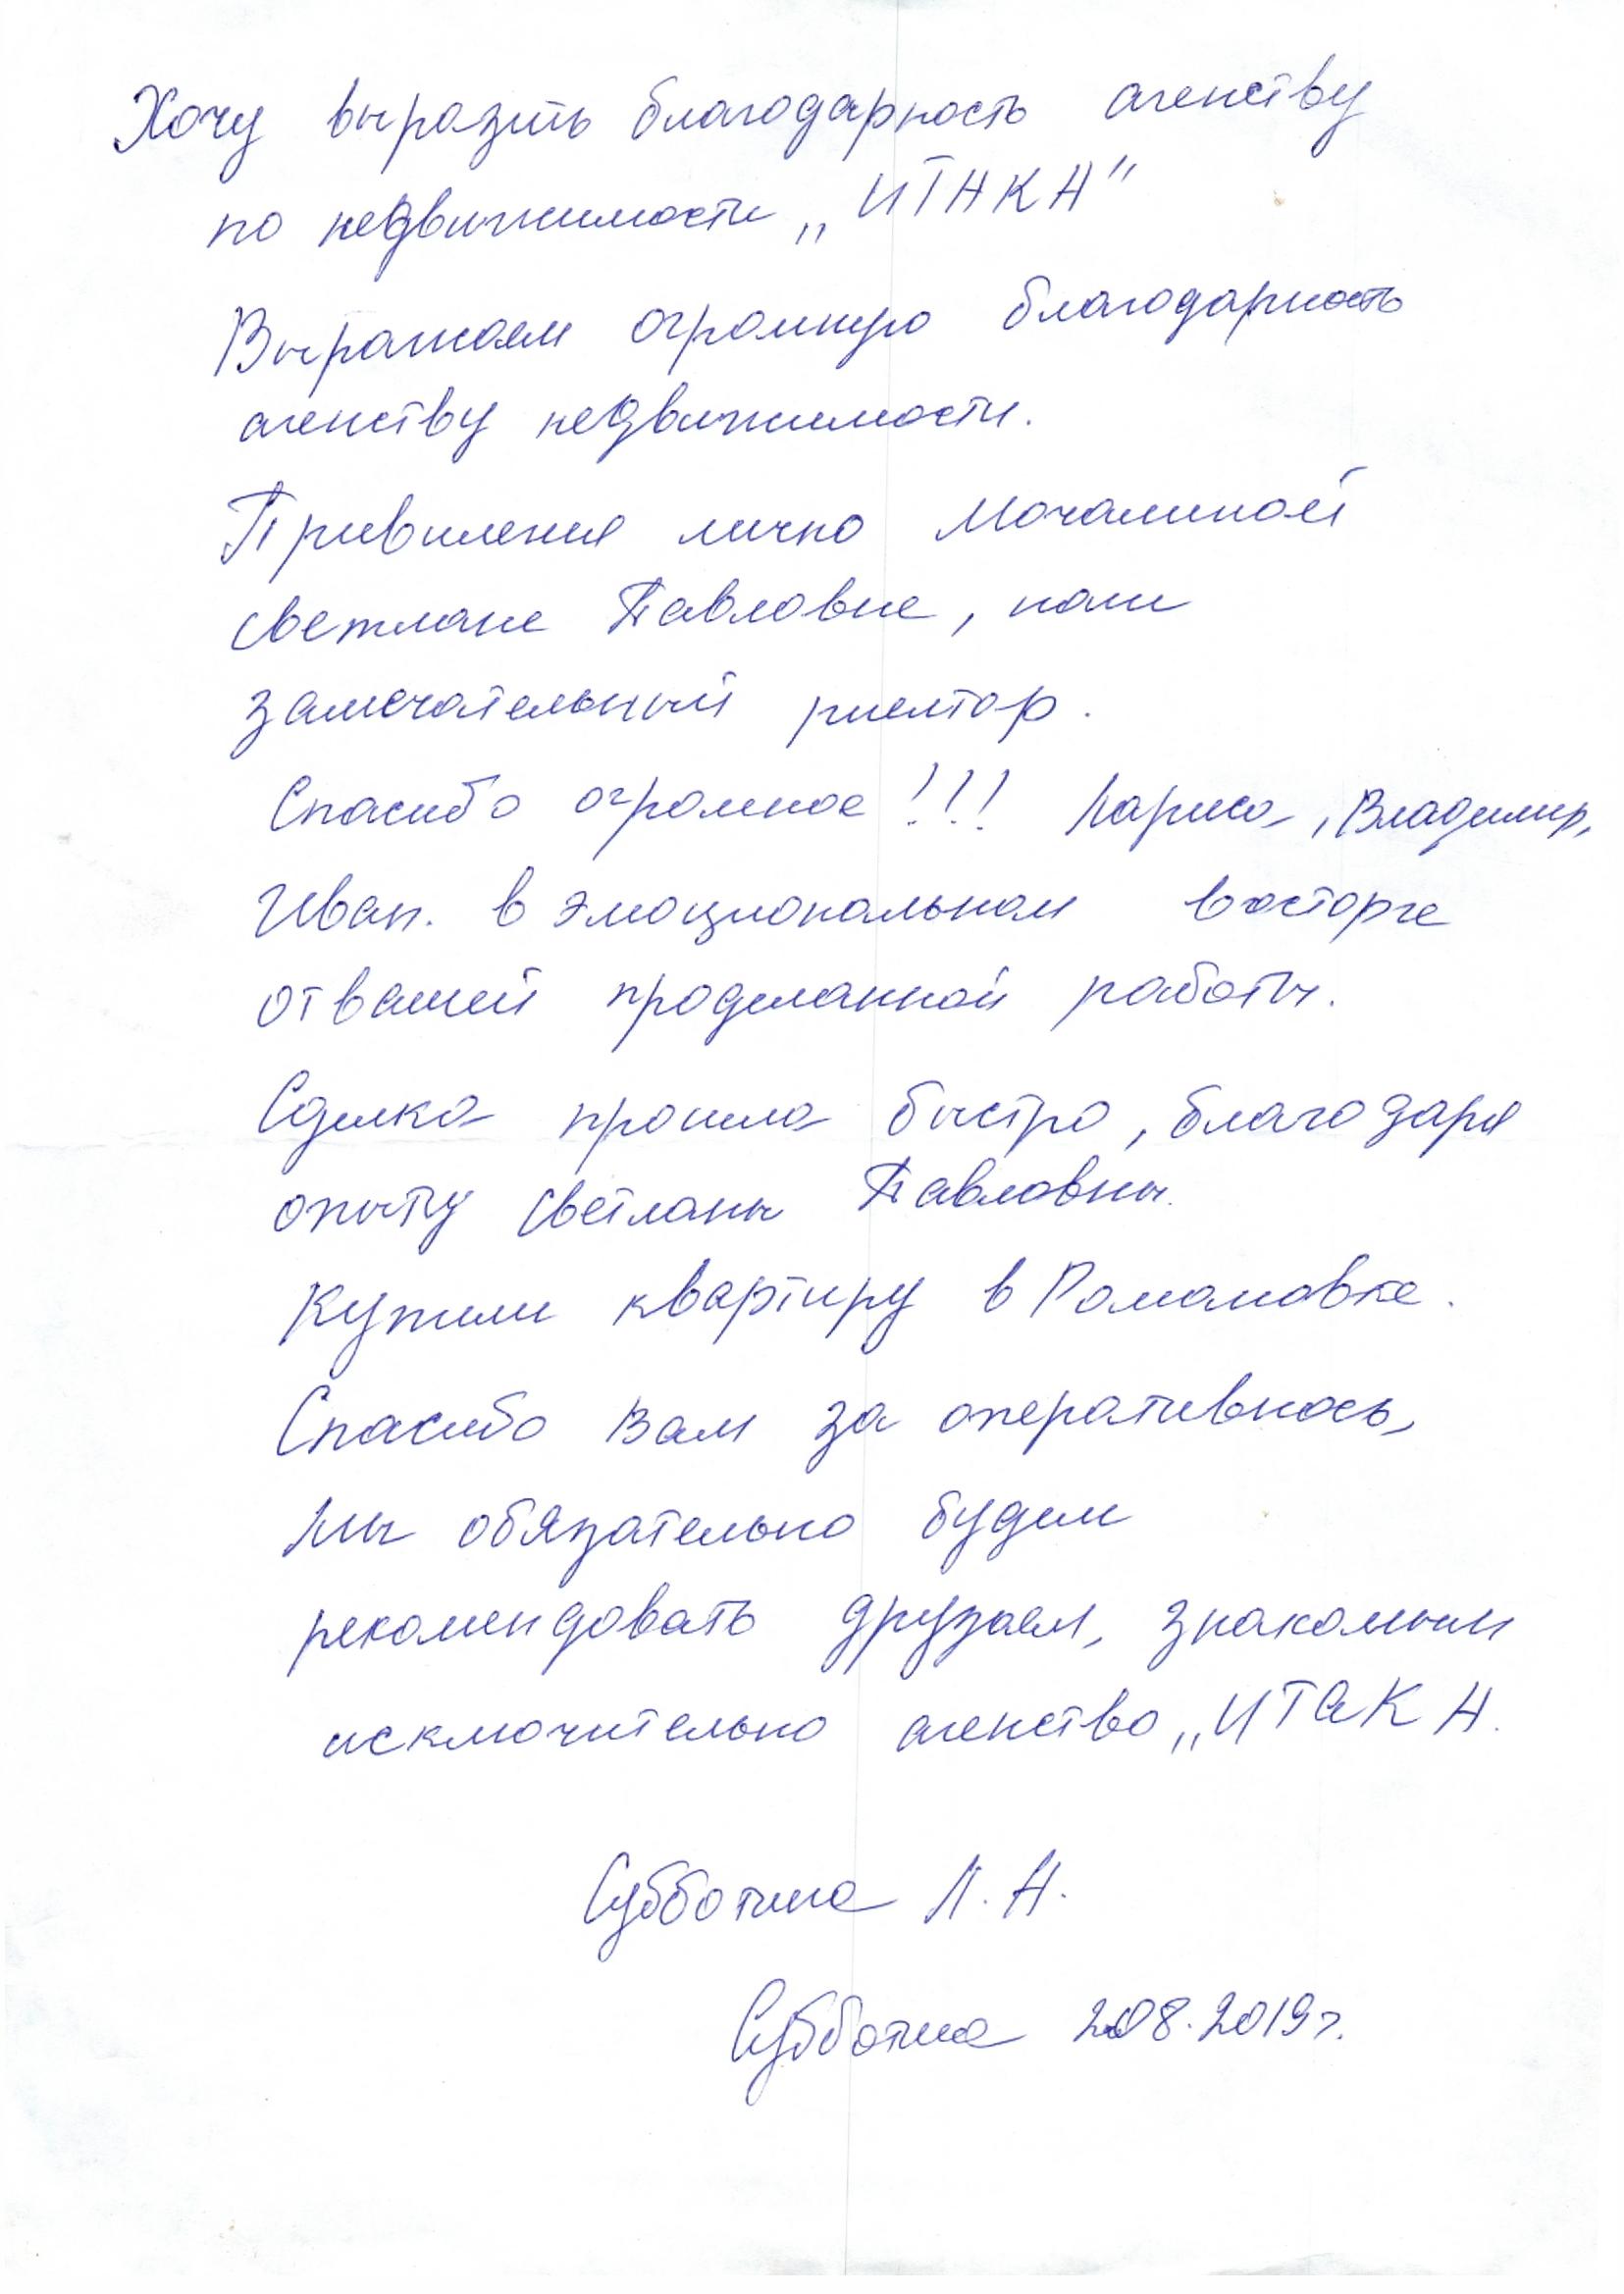 Хочу выразить благодарность агенству
по недвижимости „ИТАКА"
Выражаем огромную благодарность
агенству недвижимости.
Привилегия лично Мочалиной
Светлане Павловне,
замечательный риелтор.
Спасибо огромное!!! Лариса, Владимир,
Иван. в эмоциональном восторге
от вашей проделанной работы.
Сделка прошла быстро, благодаря
опыту Светланы Павловны.
Купили квартиру в Романовке.
Спасибо Вам за оперативнось,
Мы обязательно будем
рекомендовать друзаем, знакомым
исключительно агенство „ИТаКА.
Субботина Л.А.
Субботина 2.08.2019г.